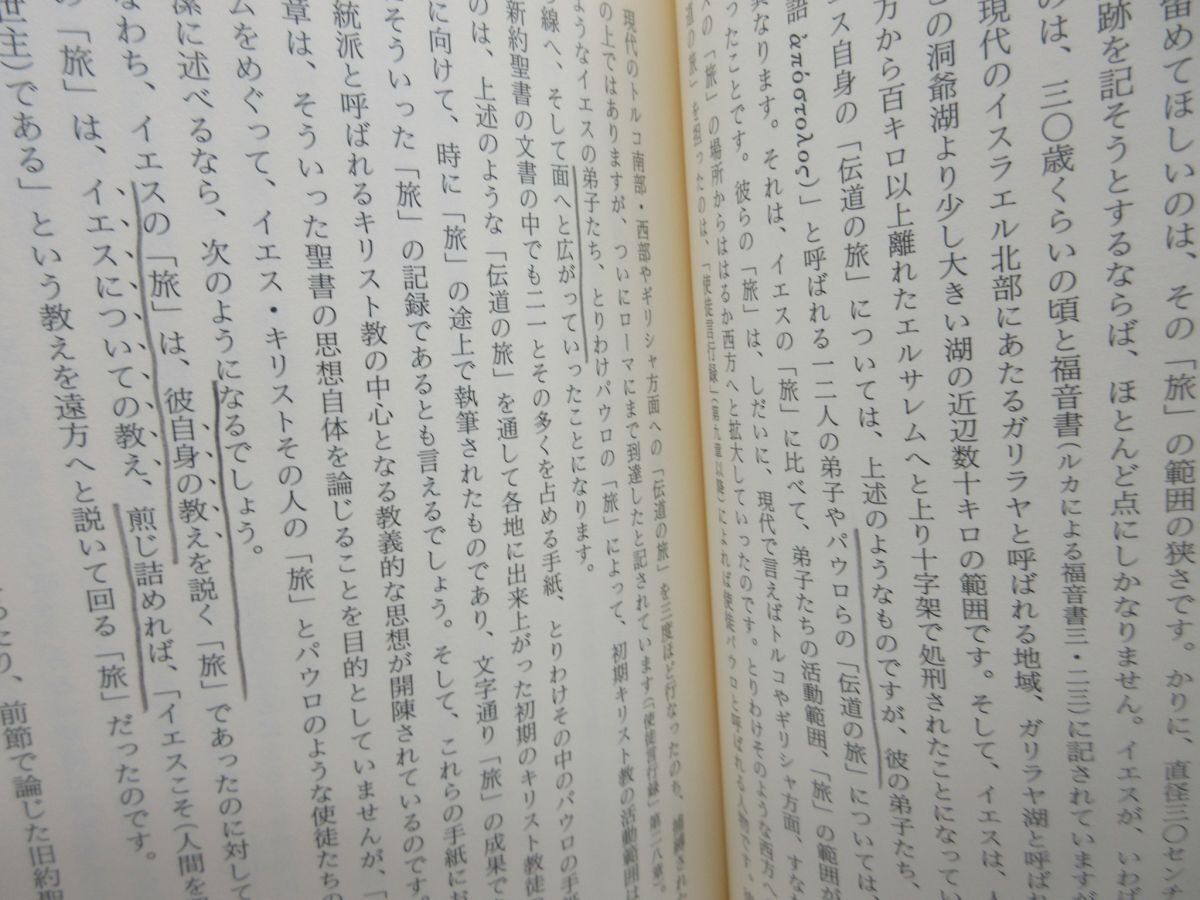 留めてほしいのは、その「旅」の範囲の狭さです。かりに、直径三〇センチ
跡を記そうとするならば、ほとんど点にしかなりません。イエスが、いわば
のは、三〇歳くらいの頃と福音書(ルカによる福音書三・二三)に記されていますが
現代のイスラエル北部にあたるガリラヤと呼ばれる地域、ガリラヤ湖と呼ばれ
の洞爺湖より少し大きい湖の近辺数十キロの範囲です。そして、イエスは、
方から百キロ以上離れたエルサレムへと上り十字架で処刑されたことになってい
ス自身の「伝道の旅」については、上述のようなものですが、彼の弟子たち、
語 ἀπόστολος)」と呼ばれる一二人の弟子やパウロらの「伝道の旅」については、
異なります。それは、イエスの「旅」に比べて、弟子たちの活動範囲、「旅」の範囲が
ったことです。彼らの「旅」は、しだいに、現代で言えばトルコやギリシャ方面、すなわ
スの「旅」の場所からははるか西方へと拡大していったのです。とりわけそのような西方へ
道の旅」を担ったのは、「使徒言行録」(第九章以降)によれば使徒パウロと呼ばれる人物です。
現代のトルコ南部・西部やギリシャ方面への「伝道の旅」を三度ほど行なったのち、捕縛され
の上ではありますが、ついにローマにまで到達したと記されています(「使徒言行録」第二八章)。
ようなイエスの弟子たち、とりわけパウロの「旅」によって、初期キリスト教の活動範囲は
線へ、そして面へと広がっていったことになります。
新約聖書の文書の中でも二一とその多くを占める手紙、とりわけその中のパウロの手紙
のは、上述のような「伝道の旅」を通して各地に出来上がった初期のキリスト教徒
に向けて、時に「旅」の途上で執筆されたものであり、文字通り「旅」の成果で
そういった「旅」の記録であるとも言えるでしょう。そして、これらの手紙にお
統派と呼ばれるキリスト教の中心となる教義的な思想が開陳されているのです。
章は、そういった聖書の思想自体を論じることを目的としていませんが、「
ムをめぐって、イエス・キリストその人の「旅」とパウロのような使徒たちの
潔に述べるなら、次のようになるでしょう。
なわち、イエスの「旅」は、彼自身の教えを説く「旅」であったのに対して
の「旅」は、イエスについての教え、煎じ詰めれば、「イエスこそ(人間を
世主)である」という教えを遠方へと説いて回る「旅」だったのです。
ったり、前節で論じた旧約聖